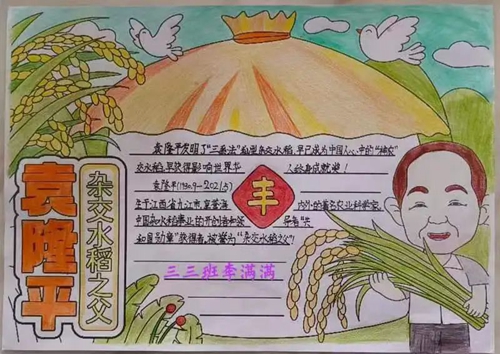 袁隆平
杂交水稻之父
袁隆平发明了"三系法"籼型杂交水稻,早已成为中国人心中的"神农"
杂交水稻,早获得影响世界华
人终身成就奖!
袁隆平(1930.9-2021.5)
丰
生于江西省九江市
内外的著名农业科学家,
中国杂交水稻事业的开创者和
导者"共
和国勋章"获得者,被誉为"杂交水稻之父"!
三三班李满满